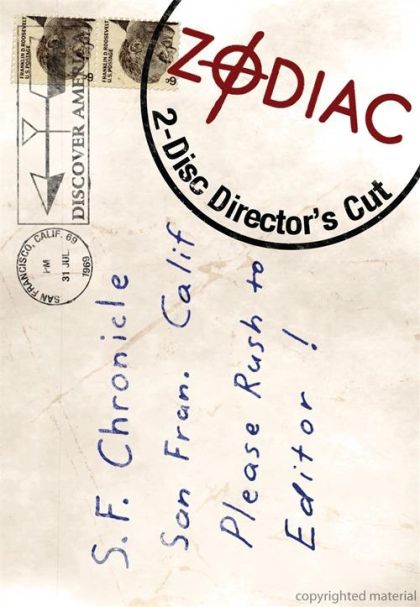 FRANKLIN D. ROOSEVELT
U.S. POSTAGE
6¢
FRANKLIN D. ROOSEVELT
U.S. POSTAGE
6¢
DISCOVER AMERICA
SAN FRANCISCO, CALIF. 69
PM
31 JUL
1969
ZODIAC
2-Disc Director's Cut
S.F. Chronicle
San Fran. Calif
Please Rush to
Editor !
copyrighted material